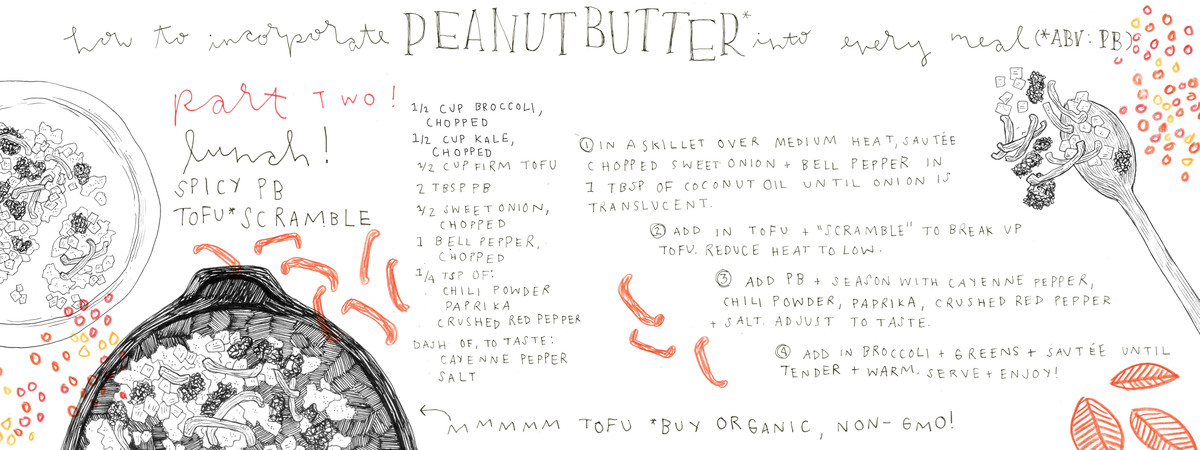 how to incorporate PEANUT BUTTER* into every meal (*ABV: PB)
part TWO!
lunch!
SPICY PB
TOFU* SCRAMBLE
1/2 CUP BROCCOLI,
CHOPPED
1/2 CUP KALE,
CHOPPED
1/2 CUP FIRM TOFU
2 TBSP PB
1/2 SWEET ONION,
CHOPPED
1 BELL PEPPER,
CHOPPED
1/4 TSP OF:
CHILI POWDER
PAPRIKA
CRUSHED RED PEPPER
DASH OF, TO TASTE:
CAYENNE PEPPER
SALT
① IN A SKILLET OVER MEDIUM HEAT, SAUTÉE
CHOPPED SWEET ONION + BELL PEPPER IN
1 TBSP OF COCONUT OIL UNTIL ONION IS
TRANSLUCENT.
② ADD IN TOFU + "SCRAMBLE" TO BREAK UP
TOFU. REDUCE HEAT TO LOW.
③ ADD PB + SEASON WITH CAYENNE PEPPER,
CHILI POWDER, PAPRIKA, CRUSHED RED PEPPER
+ SALT. ADJUST TO TASTE.
④ ADD IN BROCCOLI + GREENS + SAUTÉE UNTIL
TENDER + WARM. SERVE + ENJOY!
MMMMM TOFU *BUY ORGANIC, NON-GMO!